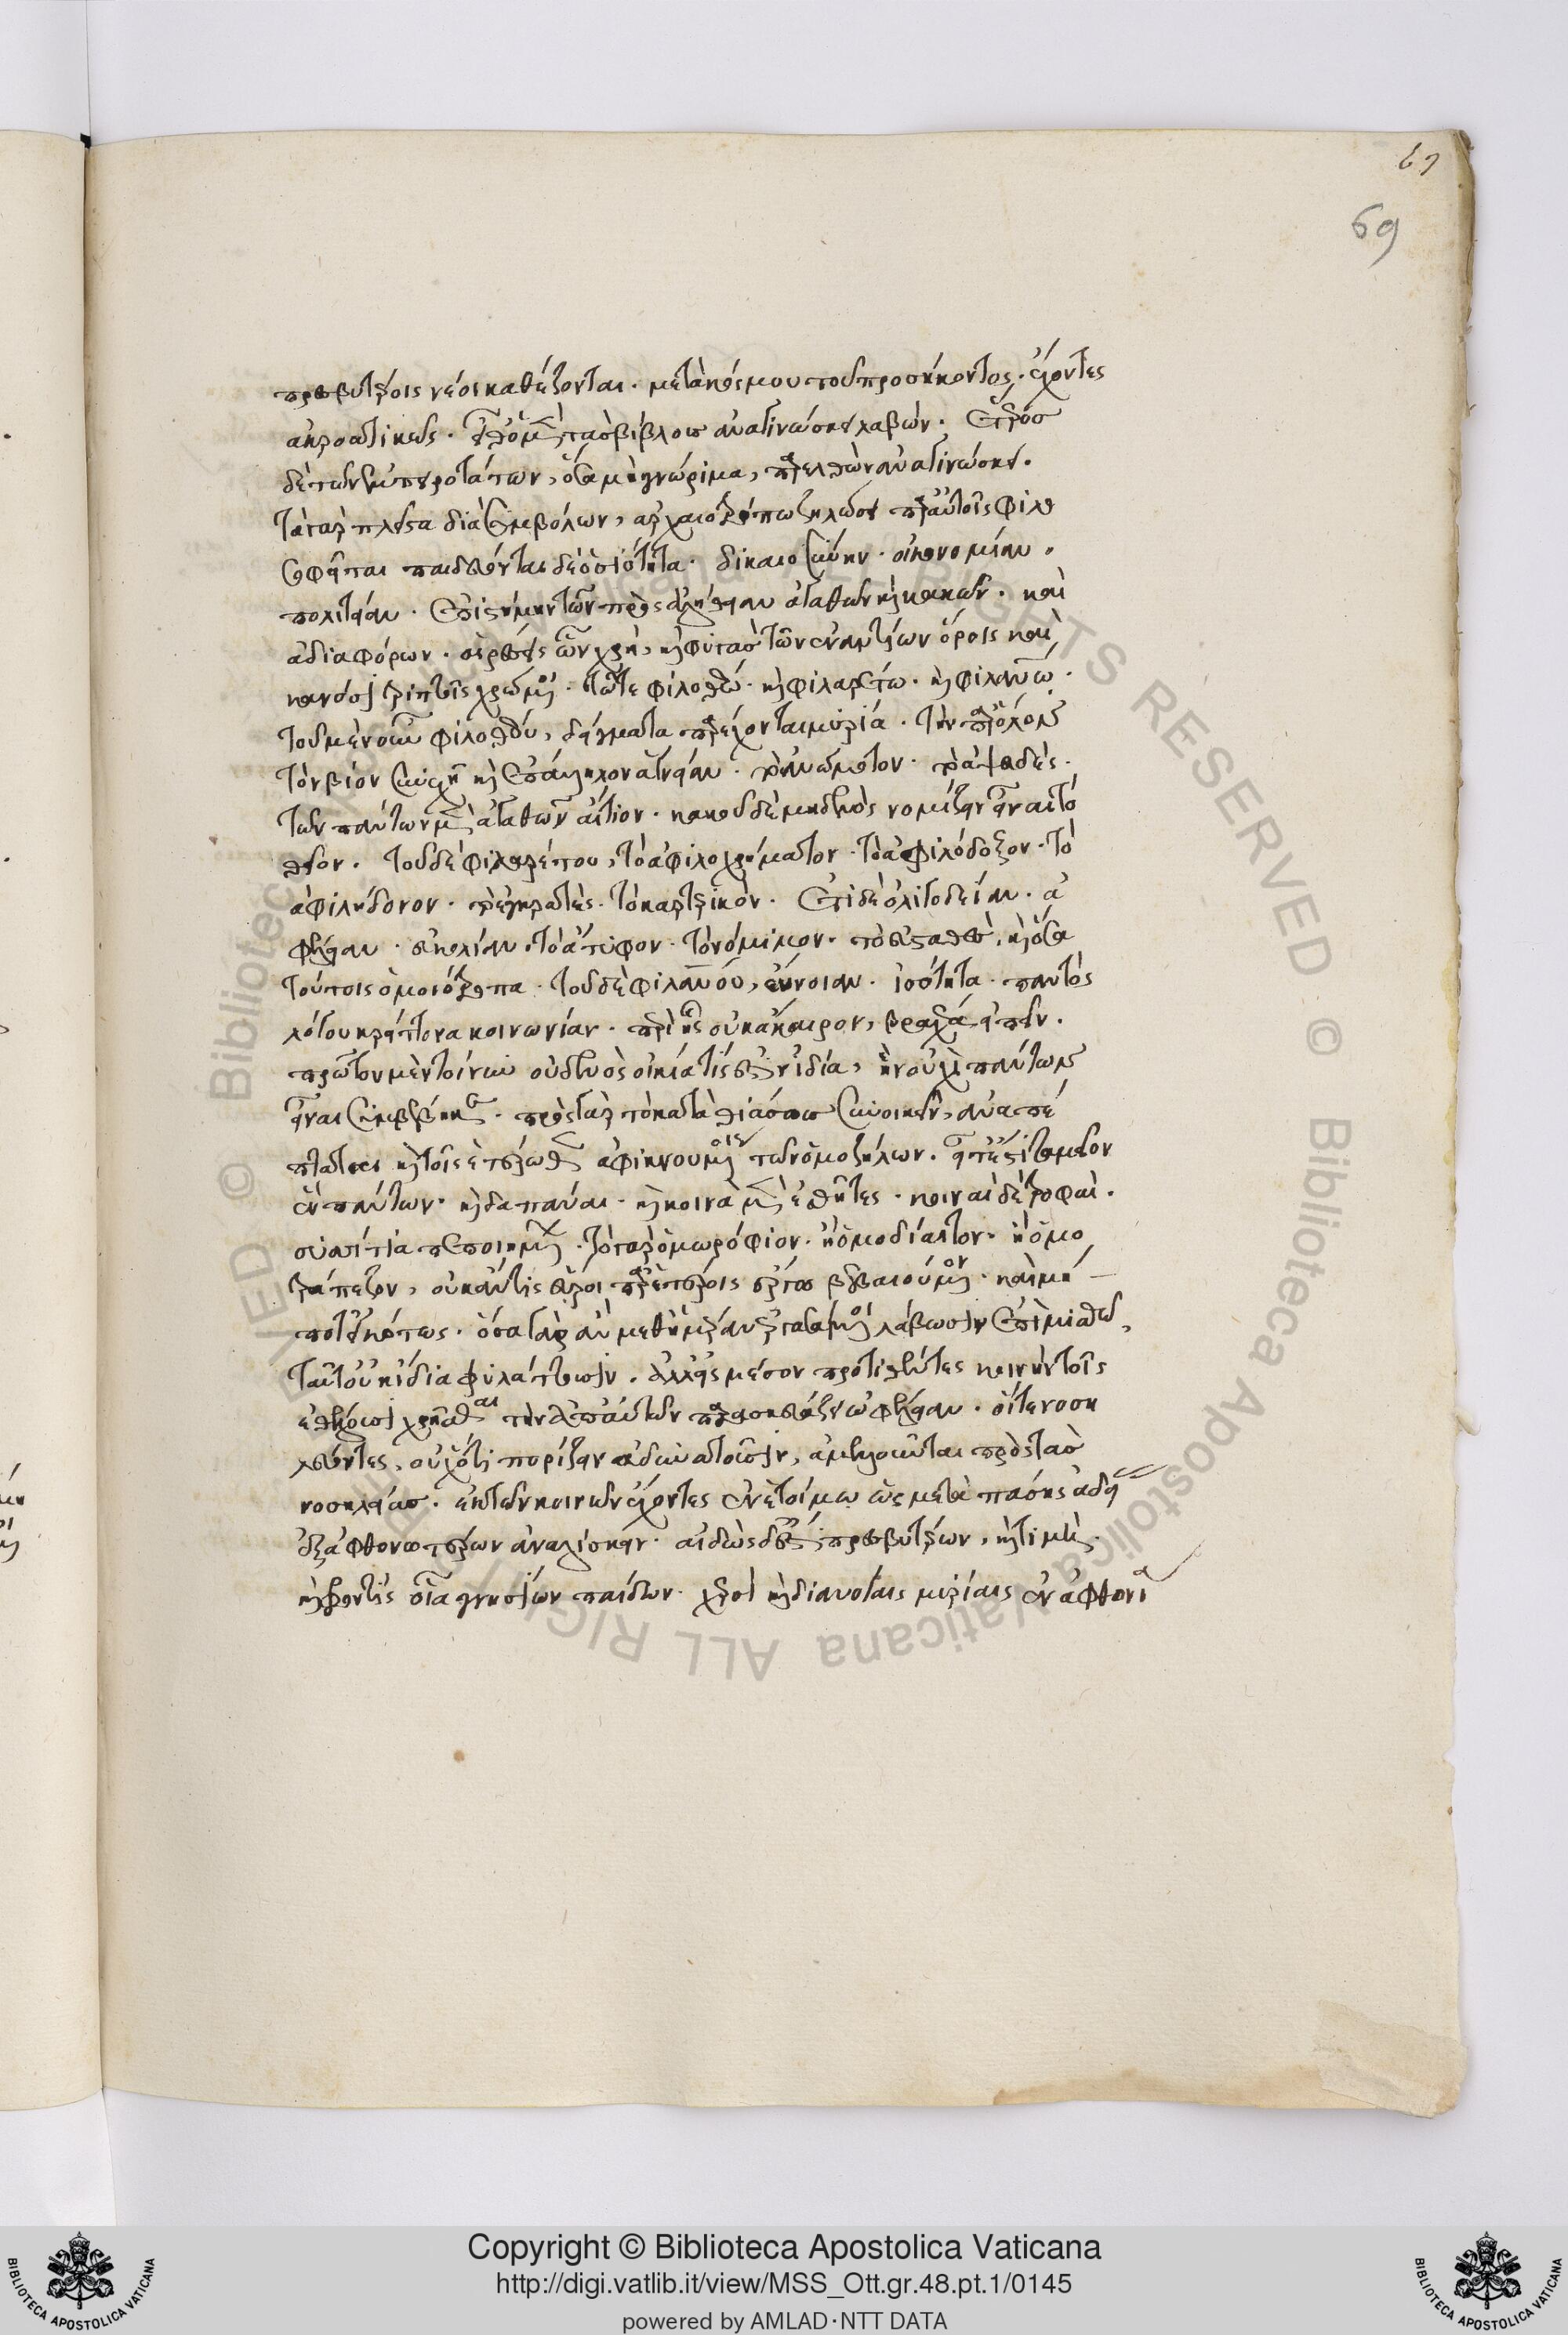 πρεσβυτέροις νέοι καθέζονται· μετὰ κόσμου τοῦ προσήκοντος· ἔχοντες
ἀκροατικῶς· εἶθ' ὁ μὲν τὰς βίβλους ἀναγινώσκει λαβών· ἕτερος
δὲ τῶν ἐμπειροτάτων, ὅσα μὴ γνώριμα, παρελθὼν ἀναγινώσκει.
τὰ γὰρ πλεῖστα διὰ συμβόλων, ἀρχαιοτρόπω ζηλώσει παρ' αὐτοῖς φιλο
σοφεῖται παιδεύονται δὲ ὁσιότητα· δικαιοσύνην· οἰκονομίαν·
πολιτείαν· ἐπιστήμην τῶν πρὸς ἀλήθειαν ἀγαθῶν καὶ κακῶν· καὶ
ἀδιαφόρων· αἱρέσεις ὧν χρὴ, καὶ φυγὰς τῶν ἐναντίων ὅροις καὶ
κανόσι τριττοῖς χρώμενοι· τῶ τε φιλοθέω· καὶ φιλαρέτω· καὶ φιλανω·
τοῦ μὲν οὖν φιλοθέου, δείγματα παρέχονται μυρία· τὴν παρ' ὅλον
τὸν βίον συνεχῆ καὶ ἐπάλληλον ἁγνείαν· τὸ ἀνώμοτον· τὸ ἀψευδές·
τῶν πάντων μὲν ἀγαθῶν αἴτιον· κακοῦ δὲ μηδενὸς νομίζειν εἶναι τὸ
θεῖον. τοῦ δὲ φιλαρέτου, τὸ ἀφιλοχρήματον· τὸ ἀφιλόδοξον· τὸ
ἀφιλήδονον· τὸ ἐγκρατὲς· τὸ καρτερικόν· ἔτι δὲ ὀλιγοδείαν· ἀ
φέλειαν· εὐκολίαν· τὸ ἄτυφον· τὸ νόμιμον· τὸ εὐσταθὲς, καὶ ὅσα
τούτοις ὁμοιότροπα· τοῦ δὲ φιλανου, εὔνοιαν· ἰσότητα· παντὸς
λόγου κρείττονα κοινωνίαν· περὶ ἧς οὐκ ἄκαιρον, βραχέα εἰπεῖν·
πρῶτον μὲν τοίνυν οὐδενὸς οἰκία τίς ἐστιν ἰδία, ἣν οὐχὶ πάντων
εἶναι συμβέβηκε· πρὸς γὰρ τὸ κατὰ θιάσους συνοικεῖν, ἀναπέ
πταται καὶ τοῖς ἑτέρωθεν ἀφικνουμένοις τῶν ὁμοζήλων. εἶτ' ἐστὶ ταμεῖον
ἓν πάντων· καὶ δαπάναι· καὶ κοιναὶ μὲν ἐσθῆτες· κοιναὶ δὲ τροφαὶ·
συσσίτια πεποιημένων· τὸ γὰρ ὁμωρόφιον· ἢ ὁμοδίαιτον· ἢ ὁμο
τράπεζον, οὐκ ἄν τις εὕροι παρ' ἑτέροις ἔργω βεβαιούμενον· καὶ μή
ποτ' εἰκότως· ὅσα γὰρ ἂν μεθ' ἡμέραν ἐργασάμενοι λάβωσιν ἐπὶ μισθῶ,
ταῦτ' οὐκ ἴδια φυλάττουσιν. ἀλλ' εἰς μέσον προτιθέντες κοινὴν τοῖς
ἐθέλουσι χρῆσθαι τὴν ἀπ' αὐτῶν παρασκευάζουσιν ὠφέλειαν· οἵτε νοση
λεύοντες, οὐχ ὅτι πορίζειν ἀδυνατοῦσιν, ἀμελοῦνται πρὸς τὰς
νοσηλείας· ἐκ τῶν κοινῶν ἔχοντες ἐν ἑτοίμω ὡς μετὰ πάσης ἀδεί
ἐξ ἀφθονωτέρων ἀναλίσκειν· αἰδὼς δ' ἐστὶ πρεσβυτέρων, καὶ τιμὴ·
καὶ φροντὶς οἷα γνησίων παίδων· χερσὶ καὶ διανοίαις μυρίαις ἐν ἀφθονί
69
Copyright © Biblioteca Apostolica Vaticana
http://digi.vatlib.it/view/MSS_Ott.gr.48.pt.1/0145
powered by AMLAD·NTT DATA